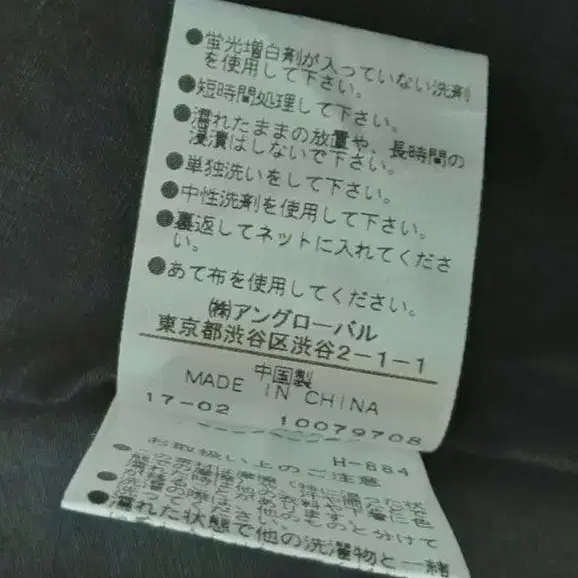 ●蛍光増白剤が入っていない洗剤
を使用して下さい。
●短時間処理して下さい。
●濡れたままの放置や、長時間の
浸漬はしないで下さい。
●単独洗いをして下さい。
●中性洗剤を使用して下さい。
●裏返してネットに入れてくださ
い。
●あて布を使用してください。
㈱アングローバル
東京都渋谷区渋谷2-1-1
中国製
MADE IN CHINA
17-02 10079708
H-664
お取扱い上のご注意
●濡れた状態で他の洗濯物と一緒